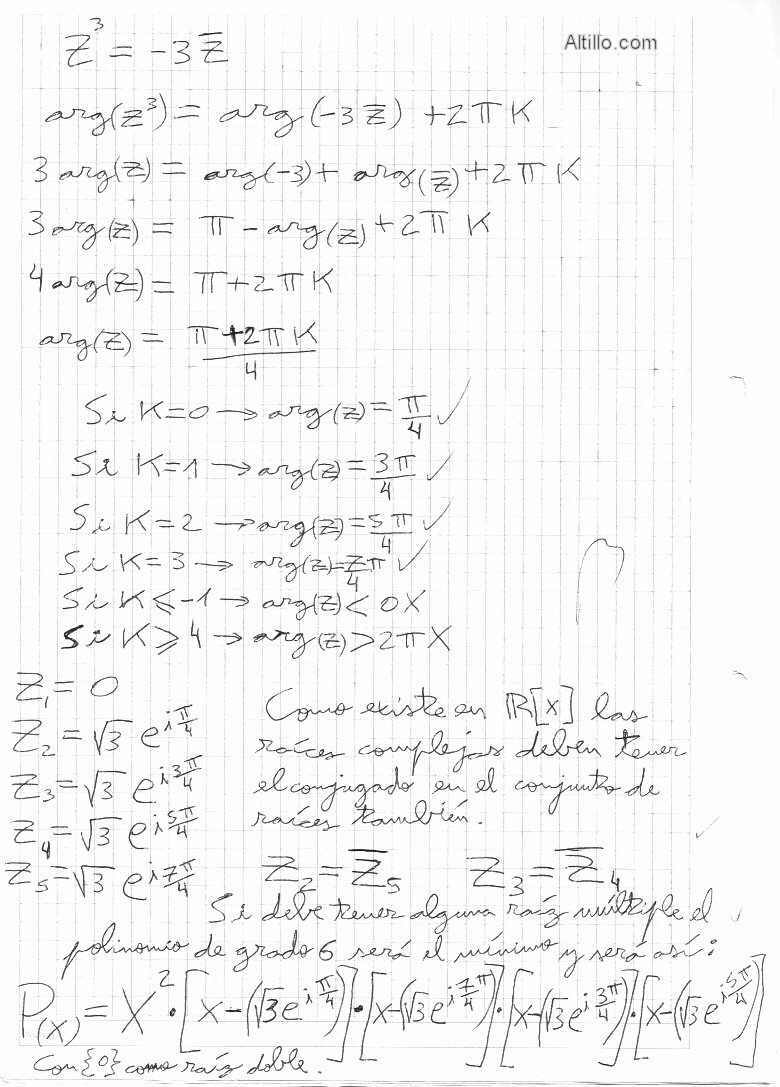 Altillo.com
Z³ = -3 Z̅
arg(z³) = arg(-3 z̅) + 2πK
3 arg(z) = arg(-3) + arg(z̅) + 2πK
3 arg(z) = π - arg(z) + 2πK
4 arg(z) = π + 2πK
arg(z) = (π + 2πK)/4
Si K=0 → arg(z) = π/4 ✓
Si K=1 → arg(z) = 3π/4 ✓
Si K=2 → arg(z) = 5π/4 ✓
Si K=3 → arg(z) = 7π/4 ✓
Si K≤-1 → arg(z) < 0 X
Si K≥4 → arg(z) > 2π X
Z₁ = 0
Z₂ = √3 e^(iπ/4)
Z₃ = √3 e^(i3π/4)
Z₄ = √3 e^(i5π/4)
Z₅ = √3 e^(i7π/4)
Como existe en ℝ[x] las
raíces complejas deben tener
el conjugado en el conjunto de
raíces también.
Z₂ = Z̅₅ Z₃ = Z̅₄
Si debe tener alguna raíz múltiple el
polinomio de grado 6 será el mínimo y será así:
P(x) = X² · [x - (√3 e^(iπ/4))] · [x - (√3 e^(i7π/4))] · [x - (√3 e^(i3π/4))] · [x - (√3 e^(i5π/4))]
Con {0} como raíz doble.